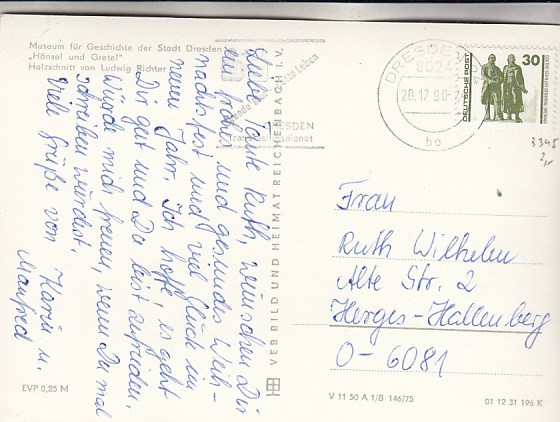 Museum für Geschichte der Stadt Dresden
„Hänsel und Gretel"
Holzschnitt von Ludwig Richter
Liebe Tante Ruth, wünschen Dir
ein frohes und gesundes Weih-
nachtsfest und viel Glück im
neuen Jahr. Ich hoffe, es geht
Dir gut und Du bist zufrieden.
Würde mich freuen, wenn Du mal
schreiben würdest.
Viele Grüße von Karin u.
Manfred
EVP 0,25 M
VEB BILD UND HEIMAT REICHENBACH I. V.
DRESDEN
8024
20.12.90
bo
Leben
DRESDEN
DEUTSCHE POST
30
3345
2,-
Frau
Ruth Wilhelm
Alte Str. 2
Herges-Hallenberg
O-6081
V 11 50 A 1/B 146/75
01 12 31 196 K